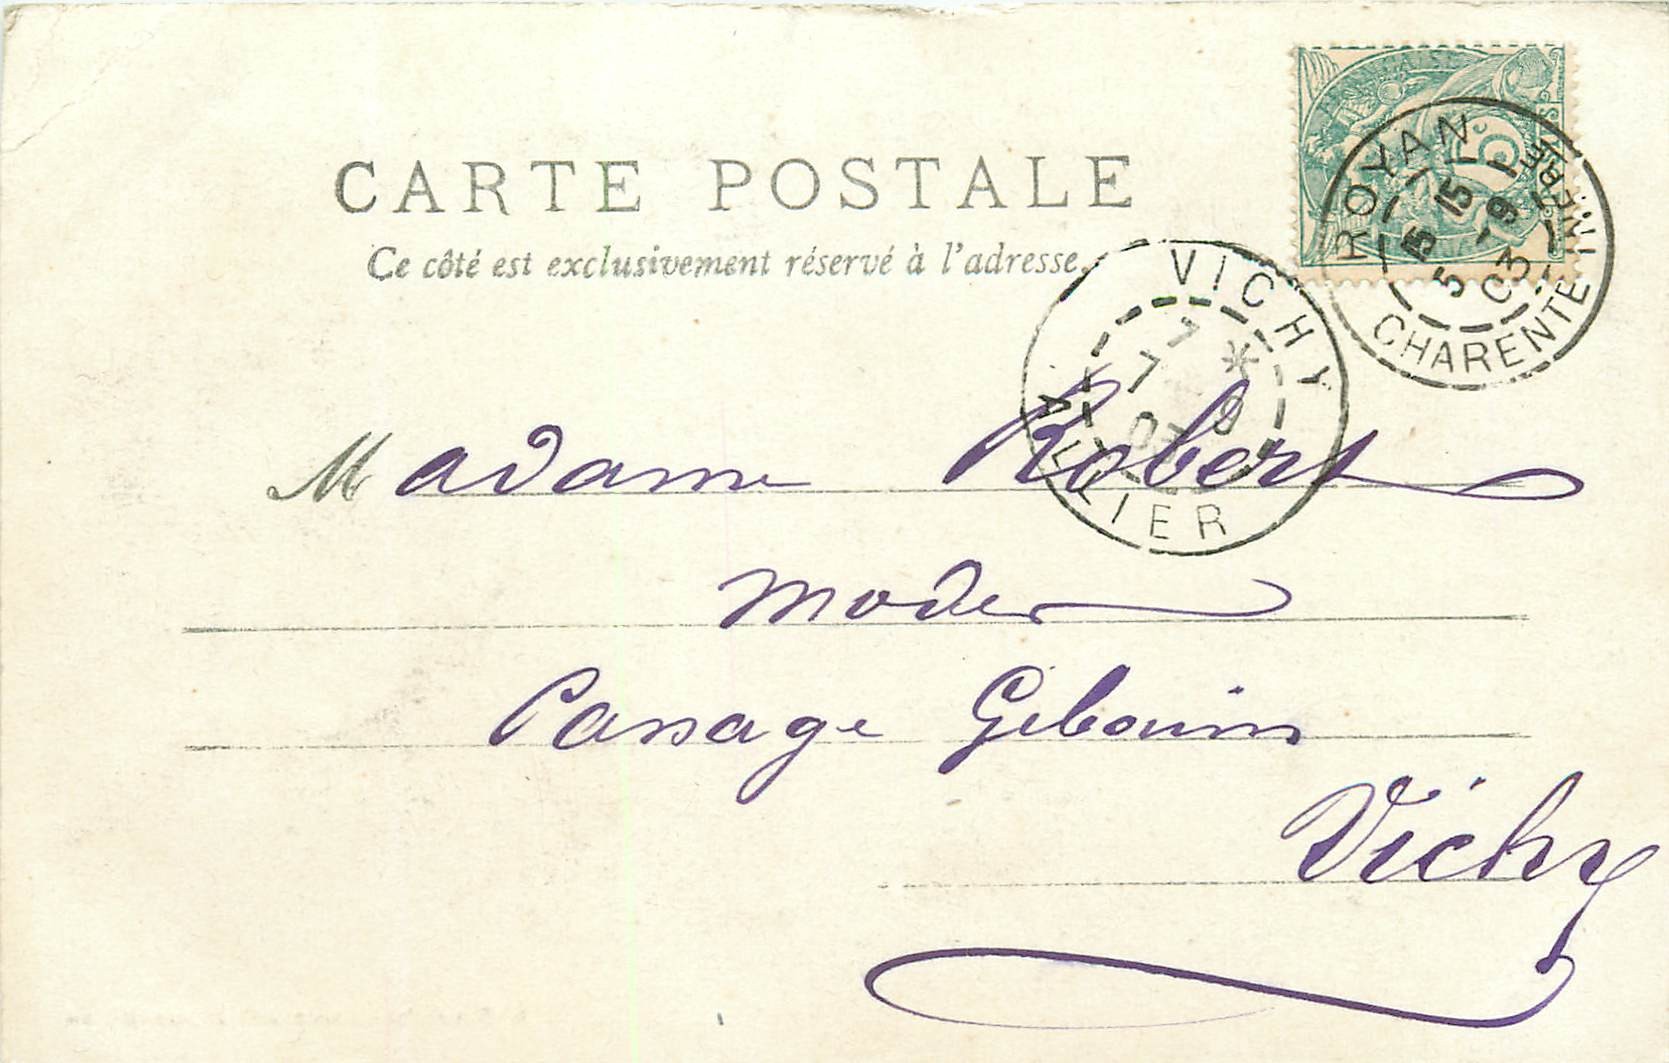 CARTE POSTALE
Ce côté est exclusivement réservé à l'adresse.
ROYAN
15 9
03
CHARENTE INFRE
VICHY
7 *
7 9
03
ALLIER
Madame Robert
Modes
Passage Giboin
Vichy